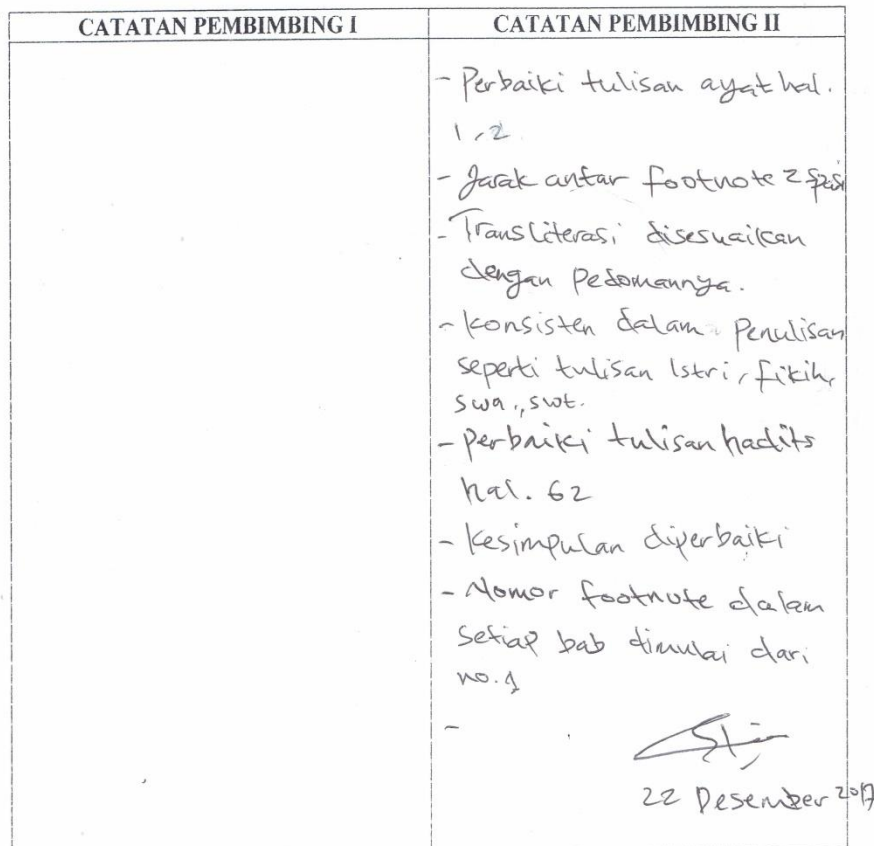 CATATAN PEMBIMBING I
CATATAN PEMBIMBING II
- Perbaiki tulisan ayat hal.
1, 2
- Jarak antar footnote 2 spasi
- Transliterasi disesuaikan
dengan Pedomannya.
- Konsisten dalam Penulisan
seperti tulisan Istri, fikih,
swa., swt.
- Perbaiki tulisan hadits
hal. 62
- Kesimpulan diperbaiki
- Nomor footnute dalam
setiap bab dimulai dari
no. 1
-
22 Desember 2017